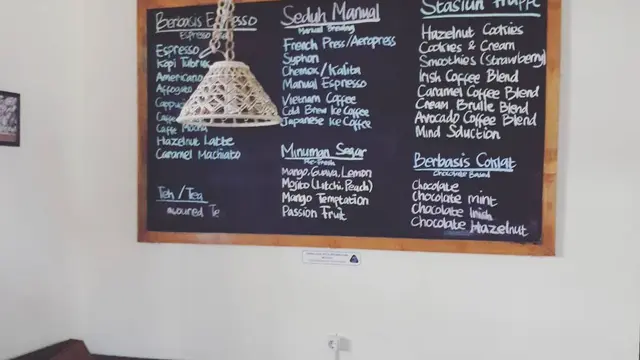 Berbasis Espresso
Espresso
Espresso
Kopi Tubruk
Americano
Affogato
Cappuc
Caffe
Caffe Mocha
Hazelnut Latte
Caramel Machiato
Teh / Tea
avoured Te
Seduh Manual
Manual Brewing
French Press/Aeropress
Syphon
Chemex/Kalita
Manual Espresso
Vietnam Coffee
Cold Brew Ice Coffee
Japanese Ice Coffee
Minuman Segar
Mango, Guava, Lemon
Mojito (Litchi, Peach)
Mango Temptation
Passion Fruit
Stasiun Frappe
Hazelnut Cookies
Cookies & Cream
Smoothies (Strawberry)
Irish Coffee Blend
Caramel Coffee Blend
Cream Brulle Blend
Avocado Coffee Blend
Mind Sduction
Berbasis Coklat
Chocolate Based
Chocolate
Chocolate mint
Chocolate Irish
Chocolate Hazelnut